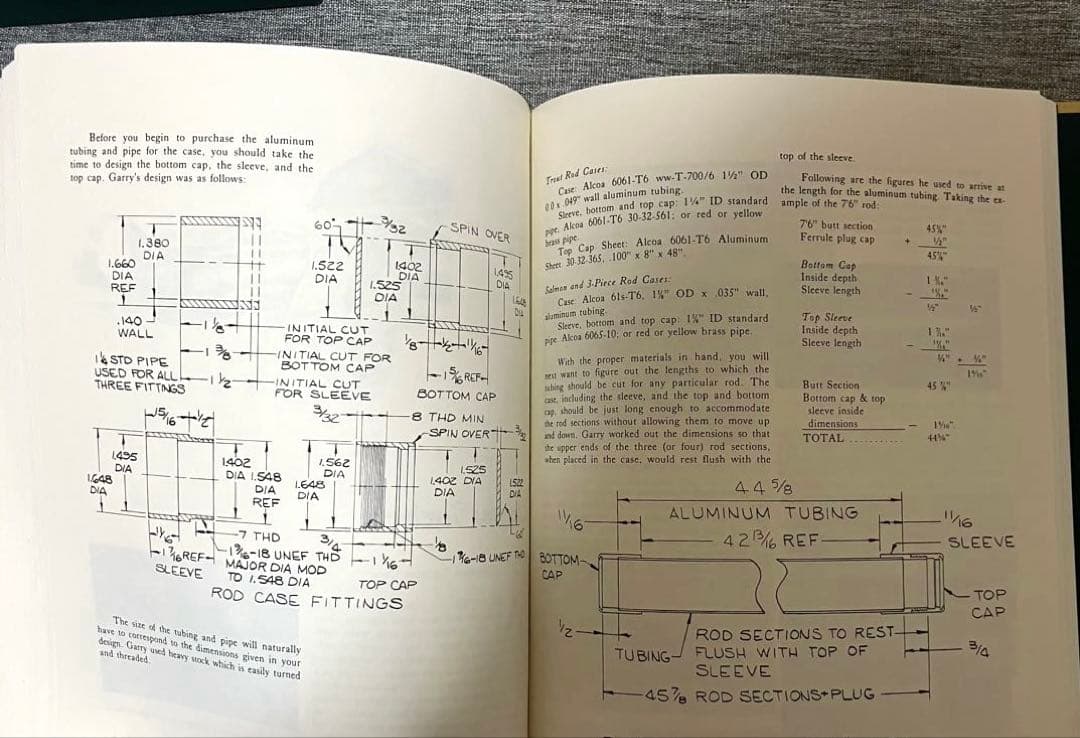 Before you begin to purchase the aluminum
tubing and pipe for the case, you should take the
time to design the bottom cap, the sleeve, and the
top cap. Garry's design was as follows:
1.380
DIA
1.660
DIA
REF
.140
WALL
STD PIPE
USED FOR ALL
THREE FITTINGS
1 1/8
1 3/8
1 1/2
INITIAL CUT
FOR TOP CAP
INITIAL CUT FOR
BOTTOM CAP
INITIAL CUT
FOR SLEEVE
60°
3/32
SPIN OVER
1.522
DIA
1.402
DIA
1.525
DIA
1.495
DIA
DIA
1/8
1/2
REF
BOTTOM CAP
15/16
1/2
1.495
DIA
1.648
DIA
1.402
DIA
1.548
DIA
REF
7 THD
REF
-18 UNEF THD
MAJOR DIA MOD
TO 1.548 DIA
SLEEVE
3/32
8 THD MIN
SPIN OVER
1.562
DIA
1.648
DIA
1.402
DIA
1.525
DIA
1.522
DIA
3/4
1 1/16
1/8
-18 UNEF THD
TOP CAP
ROD CASE FITTINGS
The size of the tubing and pipe will naturally
have to correspond to the dimensions given in your
design. Garry used heavy stock which is easily turned
and threaded.
Trout Rod Cases:
Case: Alcoa 6061-T6 ww-T-700/6 1½" OD
x .049" wall aluminum tubing.
Sleeve, bottom and top cap: 1¼" ID standard
pipe, Alcoa 6061-T6 30-32-561; or red or yellow
brass pipe.
Top Cap Sheet: Alcoa 6061-T6 Aluminum
Sheet 30-32-365, .100" x 8" x 48".
Salmon and 3-Piece Rod Cases:
Case: Alcoa 61s-T6, OD x .035" wall,
aluminum tubing.
Sleeve, bottom and top cap: ID standard
pipe Alcoa 6065-10; or red or yellow brass pipe.
With the proper materials in hand, you will
next want to figure out the lengths to which the
tubing should be cut for any particular rod. The
case, including the sleeve, and the top and bottom
cap, should be just long enough to accommodate
the rod sections without allowing them to move up
and down. Garry worked out the dimensions so that
the upper ends of the three (or four) rod sections,
when placed in the case, would rest flush with the
top of the sleeve.
Following are the figures he used to arrive at
the length for the aluminum tubing. Taking the ex-
ample of the 7'6" rod:
7'6" butt section
Ferrule plug cap +
Bottom Cap
Inside depth
Sleeve length -
Top Sleeve
Inside depth
Sleeve length -
Butt Section
Bottom cap & top
sleeve inside
dimensions -
TOTAL
44 5/8
ALUMINUM TUBING
42 13/16 REF
11/16
11/16
SLEEVE
BOTTOM
CAP
TOP
CAP
1/2
TUBING
ROD SECTIONS TO REST
FLUSH WITH TOP OF
SLEEVE
3/4
45 7/8 ROD SECTIONS + PLUG